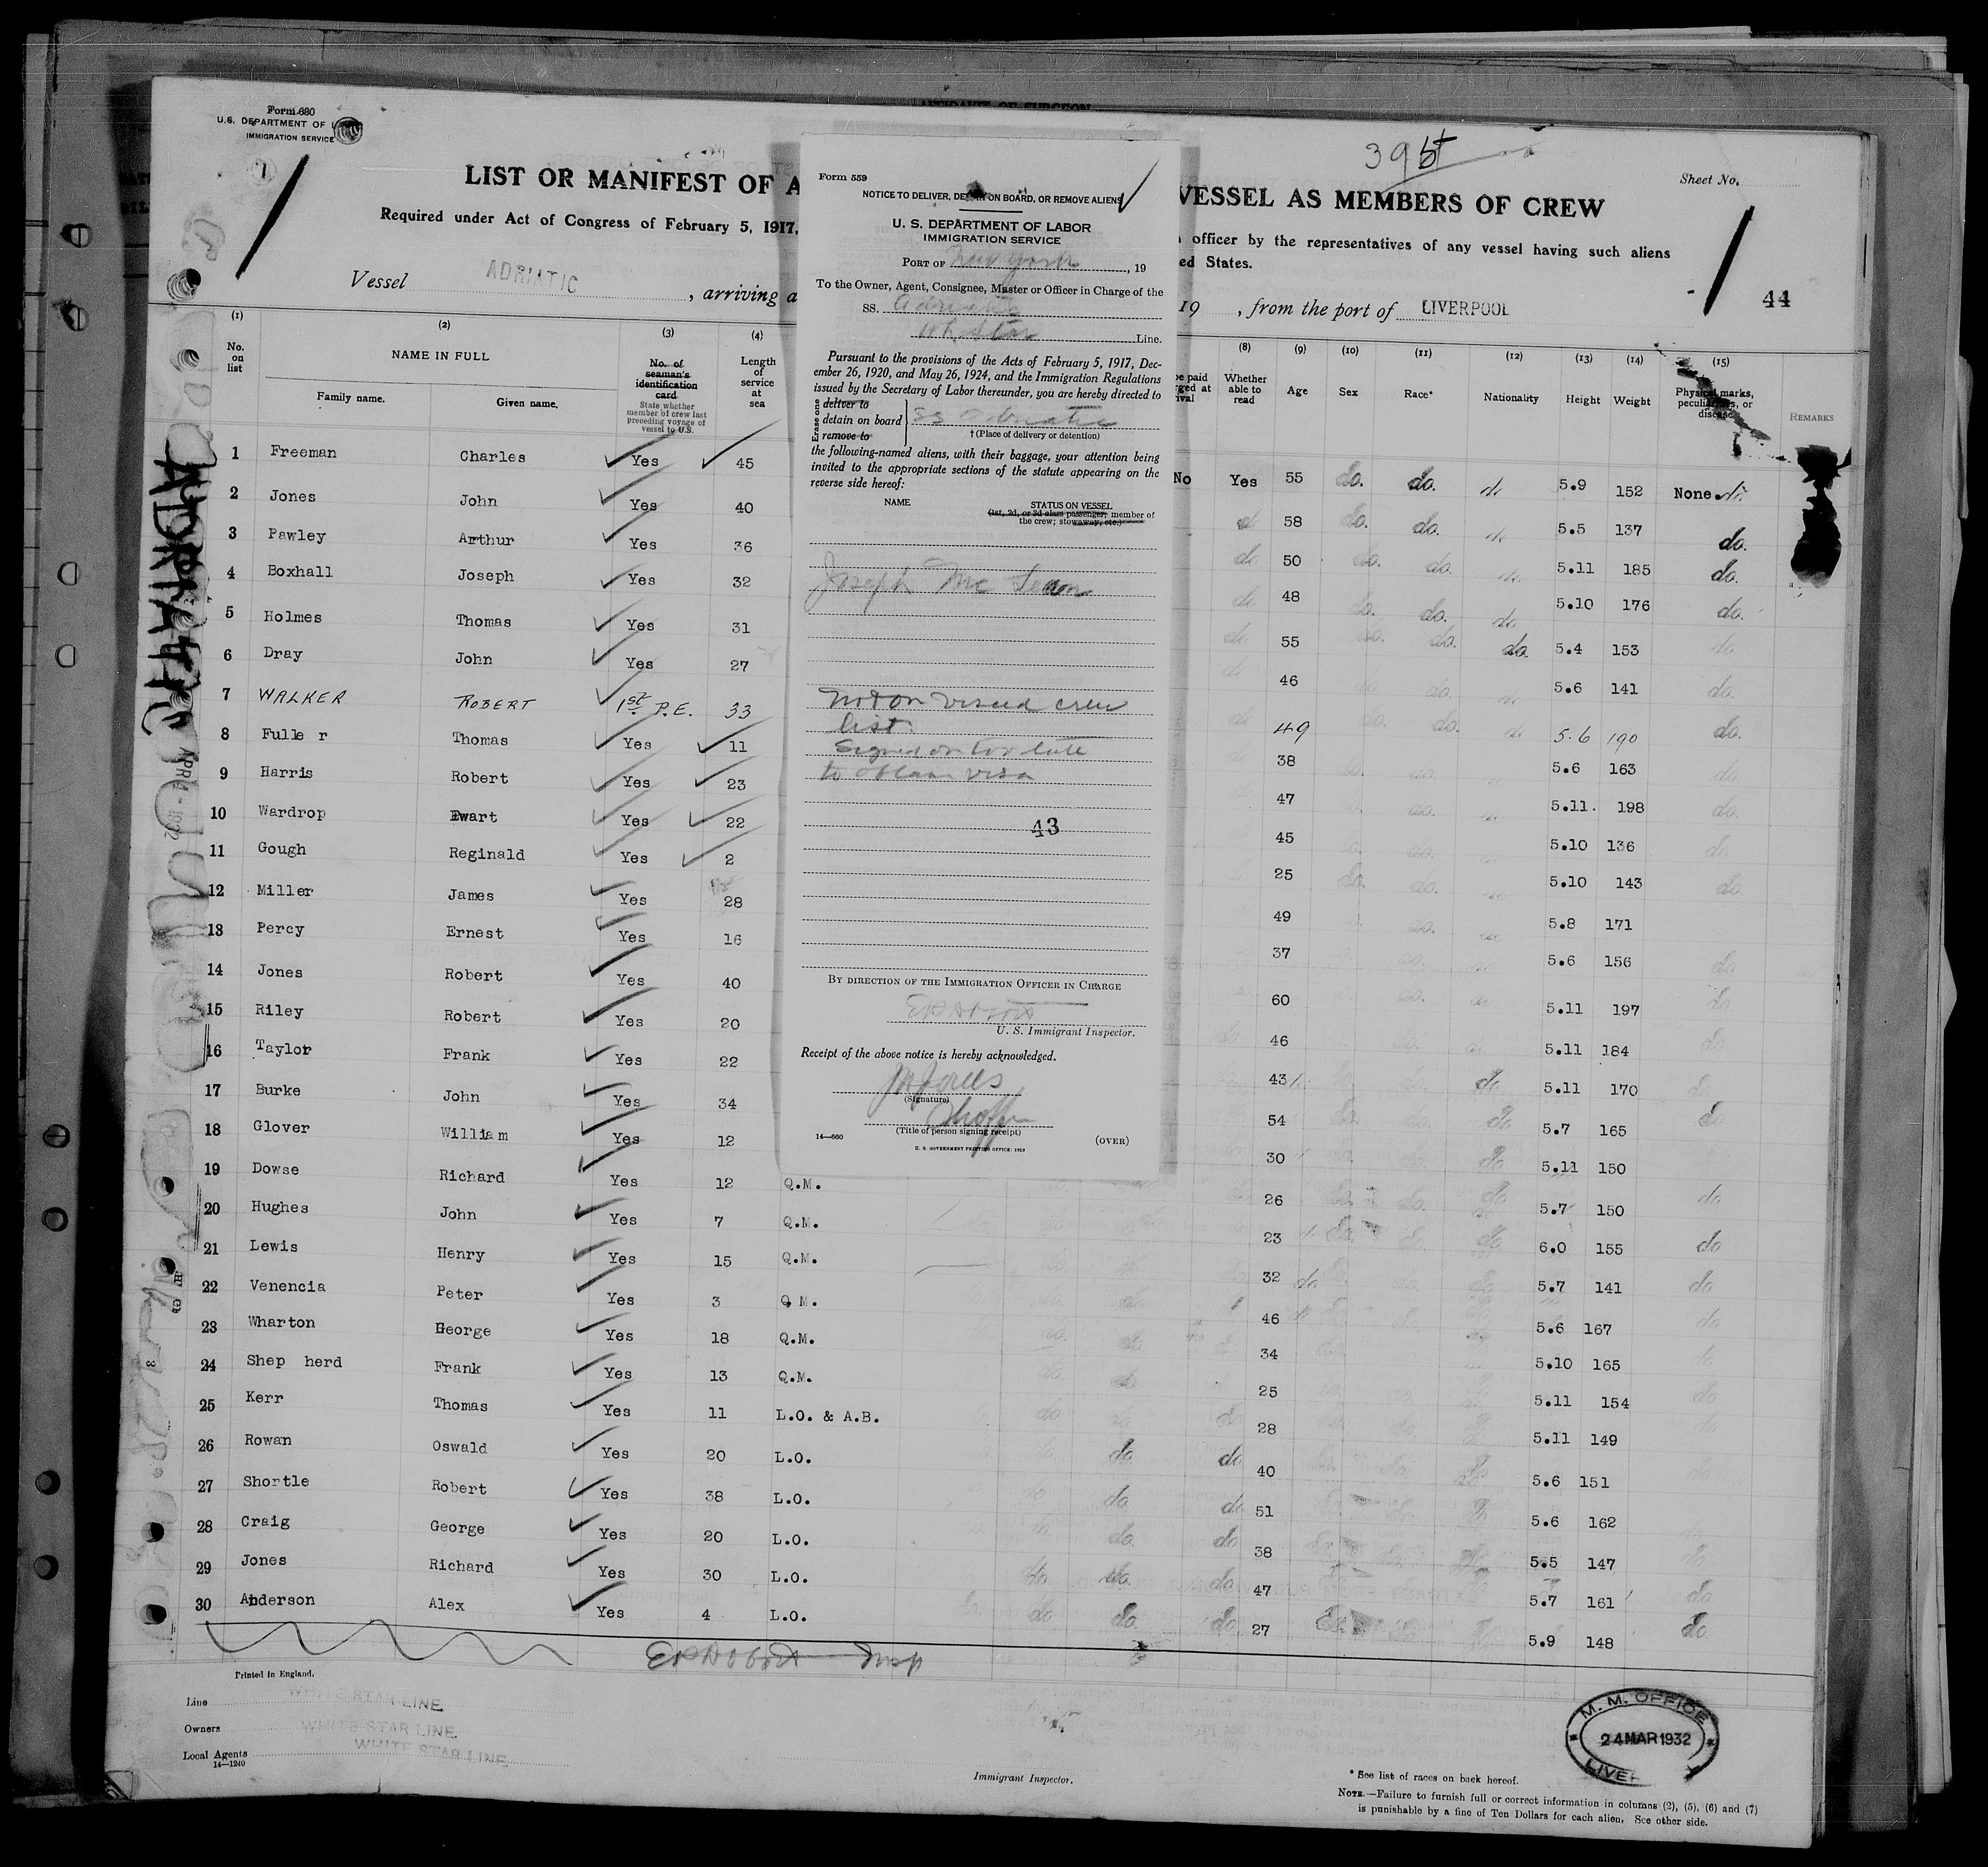 AFFIDAVIT OF SURGEON
Form 680
U.S. DEPARTMENT OF L
IMMIGRATION SERVICE
395
Sheet No.
LIST OR MANIFEST OF A
VESSEL AS MEMBERS OF CREW
Required under Act of Congress of February 5, 1917,
officer by the representatives of any vessel having such aliens
ed States.
Vessel ADRIATIC , arriving a
19 , from the port of LIVERPOOL
44
Form 559
NOTICE TO DELIVER, DETAIN ON BOARD, OR REMOVE ALIENS
U. S. DEPARTMENT OF LABOR
IMMIGRATION SERVICE
PORT OF New York , 19
To the Owner, Agent, Consignee, Master or Officer in Charge of the
SS. Adriatic
Wh. Star Line.
Pursuant to the provisions of the Acts of February 5, 1917, Dec-
ember 26, 1920, and May 26, 1924, and the Immigration Regulations
issued by the Secretary of Labor thereunder, you are hereby directed to
Erase one
deliver to
detain on board
remove to
SS Adriatic
† (Place of delivery or detention)
the following-named aliens, with their baggage, your attention being
invited to the appropriate sections of the statute appearing on the
reverse side hereof:
NAME STATUS ON VESSEL
(1st, 2d, or 3d class passenger; member of
the crew; stowaway, etc.)
Joseph Mc
Not on visaed crew
list.
Signed on too late
to obtain visa
43
BY DIRECTION OF THE IMMIGRATION OFFICER IN CHARGE
U. S. Immigrant Inspector.
Receipt of the above notice is hereby acknowledged.
(Signature)
(Title of person signing receipt)
14—660 (OVER)
U. S. GOVERNMENT PRINTING OFFICE: 1929
(1) (2) (3) (4) (8) (9) (10) (11) (12) (13) (14) (15)
No. on list
NAME IN FULL
Family name. Given name.
No. of seaman's identification card
State whether member of crew last preceding voyage of vessel to U.S.
Length of service at sea
be paid
rged at
ival
Whether able to read
Age Sex Race* Nationality Height Weight
Physical marks, peculiarities, or disease
REMARKS
1 Freeman Charles Yes 45 No Yes 55 do. do. do 5.9 152 None do
2 Jones John Yes 40 do 58 do. do. do 5.5 137 do.
3 Pawley Arthur Yes 36 do 50 do. do. do 5.11 185 do.
4 Boxhall Joseph Yes 32 do 48 do. do. do 5.10 176 do.
5 Holmes Thomas Yes 31 do 55 do. do. do 5.4 153 do
6 Dray John Yes 27 do 46 do. do 5.6 141 do.
7 WALKER ROBERT 1st P.E. 33 do 49 do. do. do 5.6 190 do.
8 Fulle r Thomas Yes 11 38 5.6 163 do
9 Harris Robert Yes 23 47 5.11. 198 do
10 Wardrop Ewart Yes 22 45 5.10 136 do
11 Gough Reginald Yes 2 25 do. do. 5.10 143 do
12 Miller James Yes 28 49 5.8 171
13 Percy Ernest Yes 16 37 5.6 156 do
14 Jones Robert Yes 40 60 5.11 197
15 Riley Robert Yes 20 46 5.11 184 do
16 Taylor Frank Yes 22 43 do 5.11 170 do
17 Burke John Yes 34 54 do. do 5.7 165 do
18 Glover William Yes 12 30 do 5.11 150
19 Dowse Richard Yes 12 Q.M. 26 do. do. do 5.7 150 do
20 Hughes John Yes 7 Q.M. 23 do. do 6.0 155 do
21 Lewis Henry Yes 15 Q.M. 32 do 5.7 141 do
22 Venencia Peter Yes 3 Q M. do 46 5.6 167 do
23 Wharton George Yes 18 Q.M. do 34 5.10 165 do
24 Shep herd Frank Yes 13 Q.M. do 25 5.11 154 do
25 Kerr Thomas Yes 11 L.O. & A.B. do do 28 5.11 149
26 Rowan Oswald Yes 20 L.O. do do 40 do 5.6 151
27 Shortle Robert Yes 38 L.O. do do 51 5.6 162
28 Craig George Yes 20 L.O. do. do 38 5.5 147
29 Jones Richard Yes 30 L.O. do do. do 47 5.7 161 do
30 Anderson Alex Yes 4 L.O. do do. do 27 do. 5.9 148 do.
ADRIATIC
Insp
Printed in England.
Line WHITE STAR LINE
Owners WHITE STAR LINE
Local Agents WHITE STAR LINE
14—1240
Immigrant Inspector.
M. M. OFFICE
24 MAR 1932
LIVE
* See list of races on back hereof.
NOTE.—Failure to furnish full or correct information in columns (2), (5), (6) and (7)
is punishable by a fine of Ten Dollars for each alien. See other side.